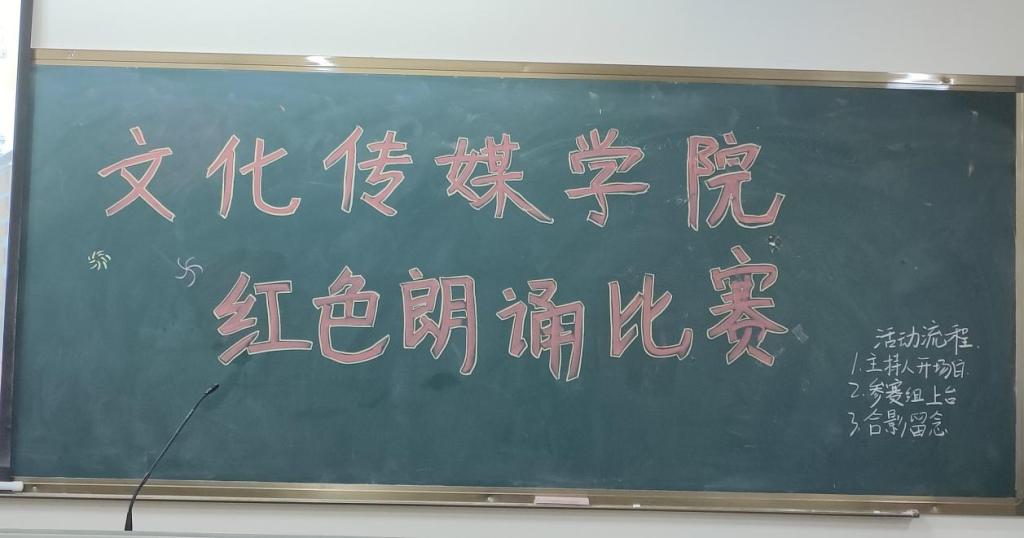 文化传媒学院
红色朗诵比赛
活动流程.
1.主持人开场白.
2.参赛组上台
3.合影留念